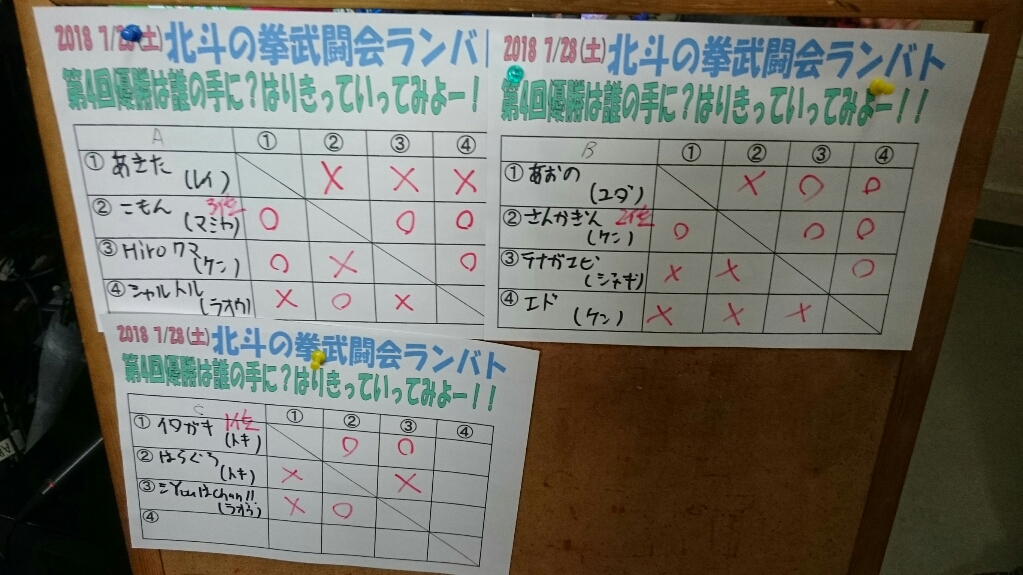 2018 7/28(土)北斗の拳武闘会ランバト
第4回優勝は誰の手に？はりきっていってみよー！
A ① ② ③ ④
① あきた (レイ) X X X
② こもん 3位 (マミヤ) ○ ○ ○
③ Hiroクマ (ケン) ○ X ○
④ シャルトル (ラオウ) X ○ X
2018 7/28(土)北斗の拳武闘会ランバト
第4回優勝は誰の手に？はりきっていってみよー！！
B ① ② ③ ④
① あおの (ユダ) X ○ ○
② さんかきん 2位 (ケン) ○ ○ ○
③ テナガエビ (シネキ) X X ○
④ エド (ケン) X X X
2018 7/28(土)北斗の拳武闘会ランバト
第4回優勝は誰の手に？はりきっていってみよー！！
C ① ② ③ ④
① イワガキ 1位 (トキ) ○ ○
② はらぐろ (トキ) X X
③ ミYouはchan!! (ラオウ) X ○
④